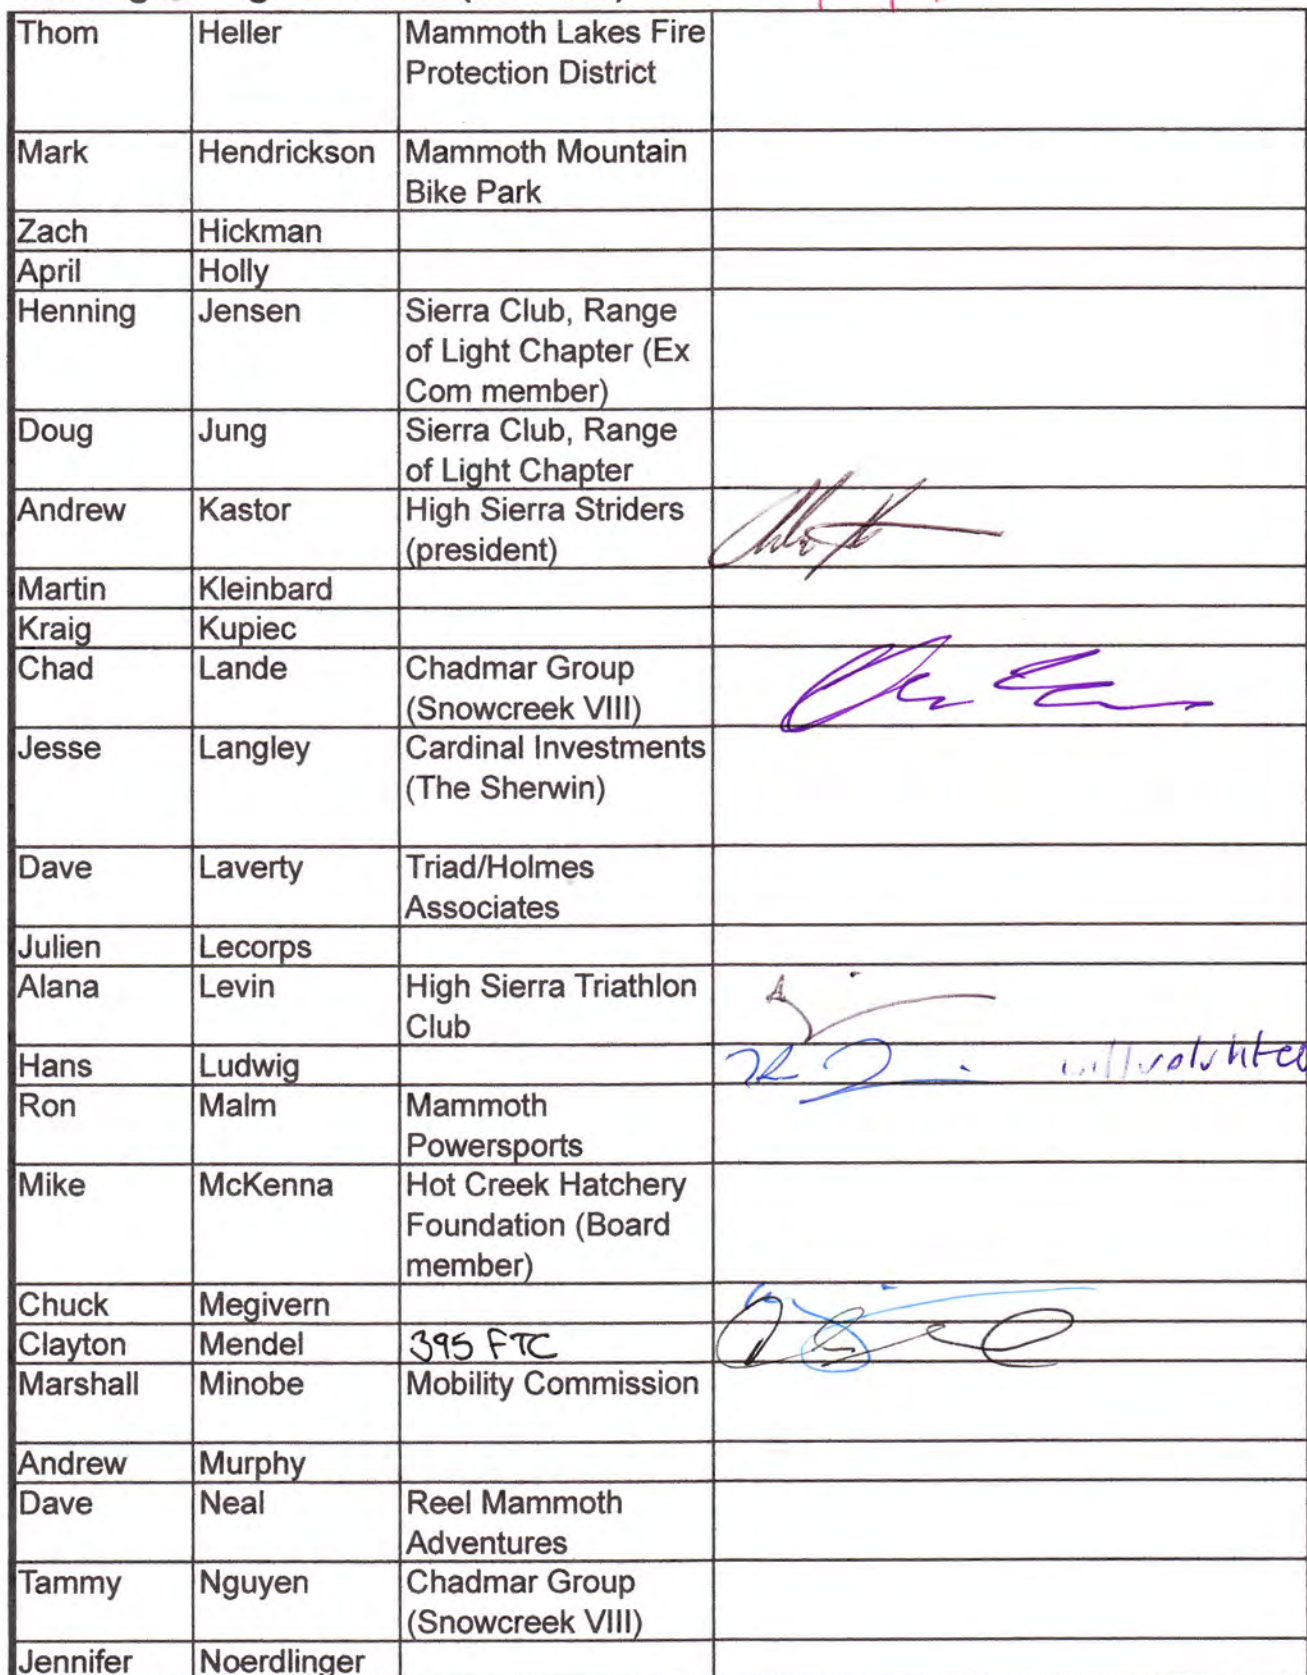 Thom Heller Mammoth Lakes Fire
Protection District
Mark Hendrickson Mammoth Mountain
Bike Park
Zach Hickman
April Holly
Henning Jensen Sierra Club, Range
of Light Chapter (Ex
Com member)
Doug Jung Sierra Club, Range
of Light Chapter
Andrew Kastor High Sierra Striders
(president)
Martin Kleinbard
Kraig Kupiec
Chad Lande Chadmar Group
(Snowcreek VIII)
Jesse Langley Cardinal Investments
(The Sherwin)
Dave Laverty Triad/Holmes
Associates
Julien Lecorps
Alana Levin High Sierra Triathlon
Club
Hans Ludwig will
Ron Malm Mammoth
Powersports
Mike McKenna Hot Creek Hatchery
Foundation (Board
member)
Chuck Megivern
Clayton Mendel 395 FTC
Marshall Minobe Mobility Commission
Andrew Murphy
Dave Neal Reel Mammoth
Adventures
Tammy Nguyen Chadmar Group
(Snowcreek VIII)
Jennifer Noerdlinger